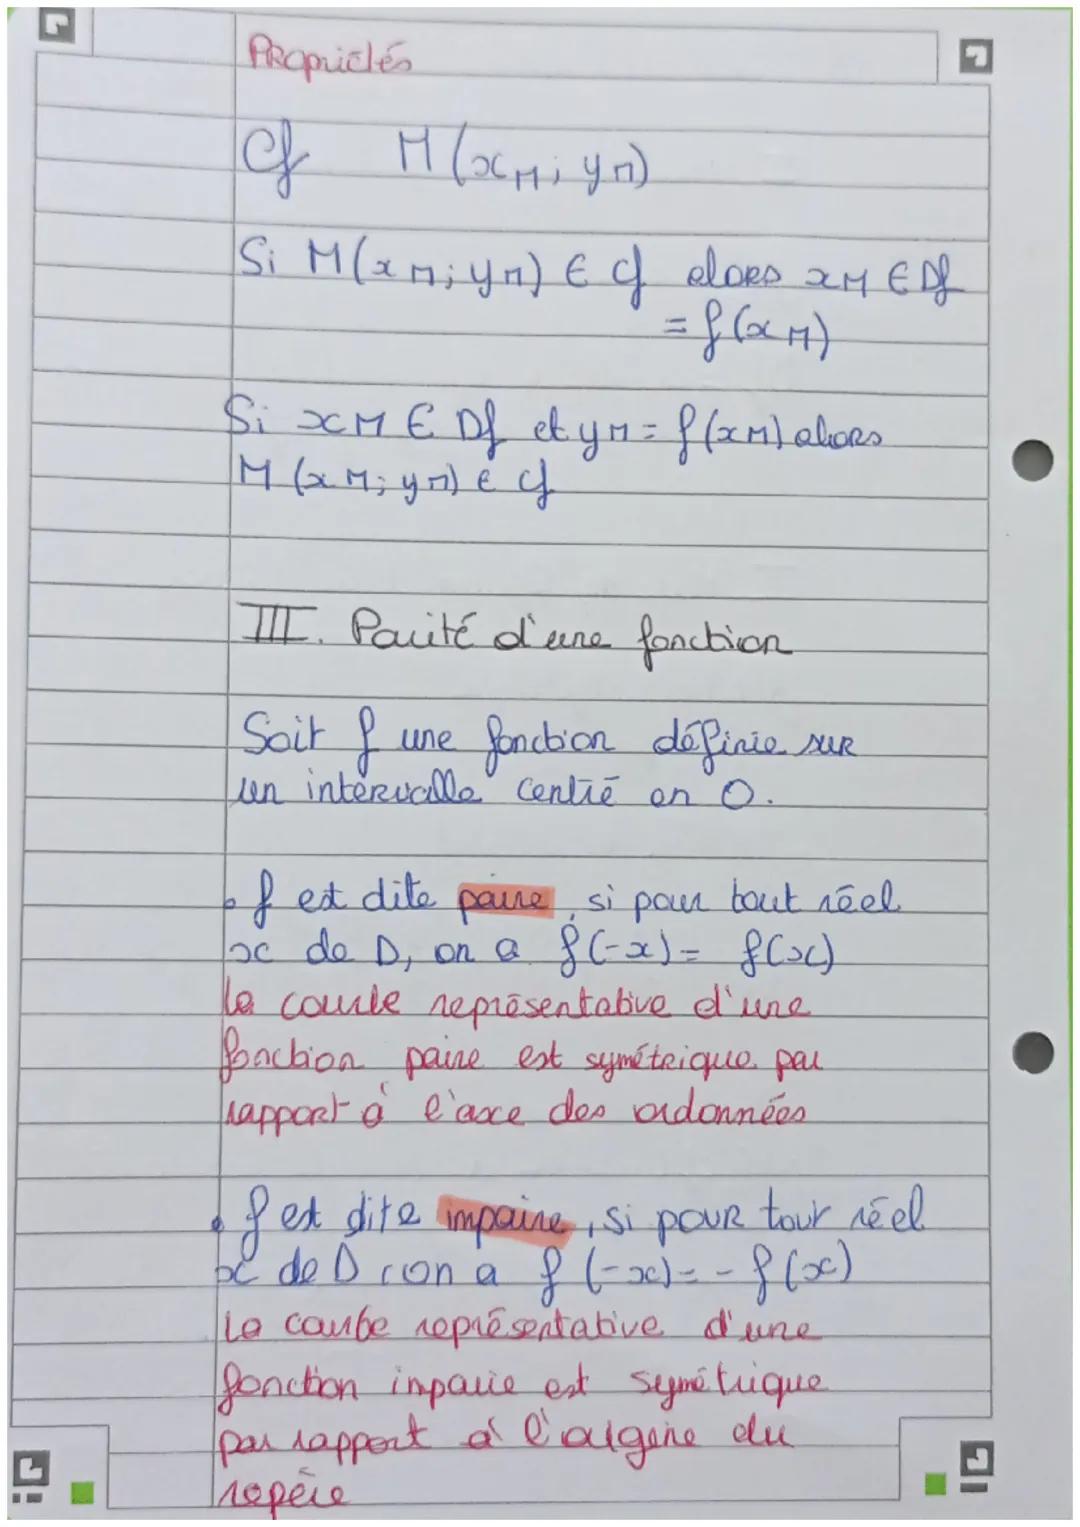 Propriétés
Cf M(xM; yM)
Si M(xM; yM) ∈ Cf alors xM ∈ Df
= f(xM)
Si xM ∈ Df et yM = f(xM) alors
M(xM; yM) ∈ Cf
III. Parité d'une fonction
Soit f une fonction définie sur
un intervalle centré en 0.
• f est dite paire, si pour tout réel
x de D, on a f(-x) = f(x)
la courbe représentative d'une
fonction paire est symétrique par
rapport à l'axe des ordonnées
• f est dite impaire, si pour tout réel
x de D, on a f(-x) = - f(x)
La courbe représentative d'une
fonction impaire est symétrique
par rapport à l'origine du
repère